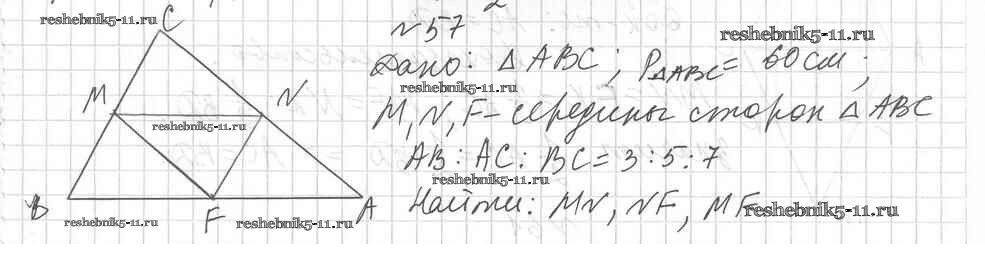 №57
reshebnik5-11.ru
reshebnik5-11.ru
Дано: △ABC; P△ABC = 60см;
reshebnik5-11.ru
M, N, F – середины сторон △ABC
AB : AC : BC = 3 : 5 : 7
reshebnik5-11.ru
Найти: MN, NF, MF
reshebnik5-11.ru
C
M
N
reshebnik5-11.ru
B
F
A
reshebnik5-11.ru
reshebnik5-11.ru